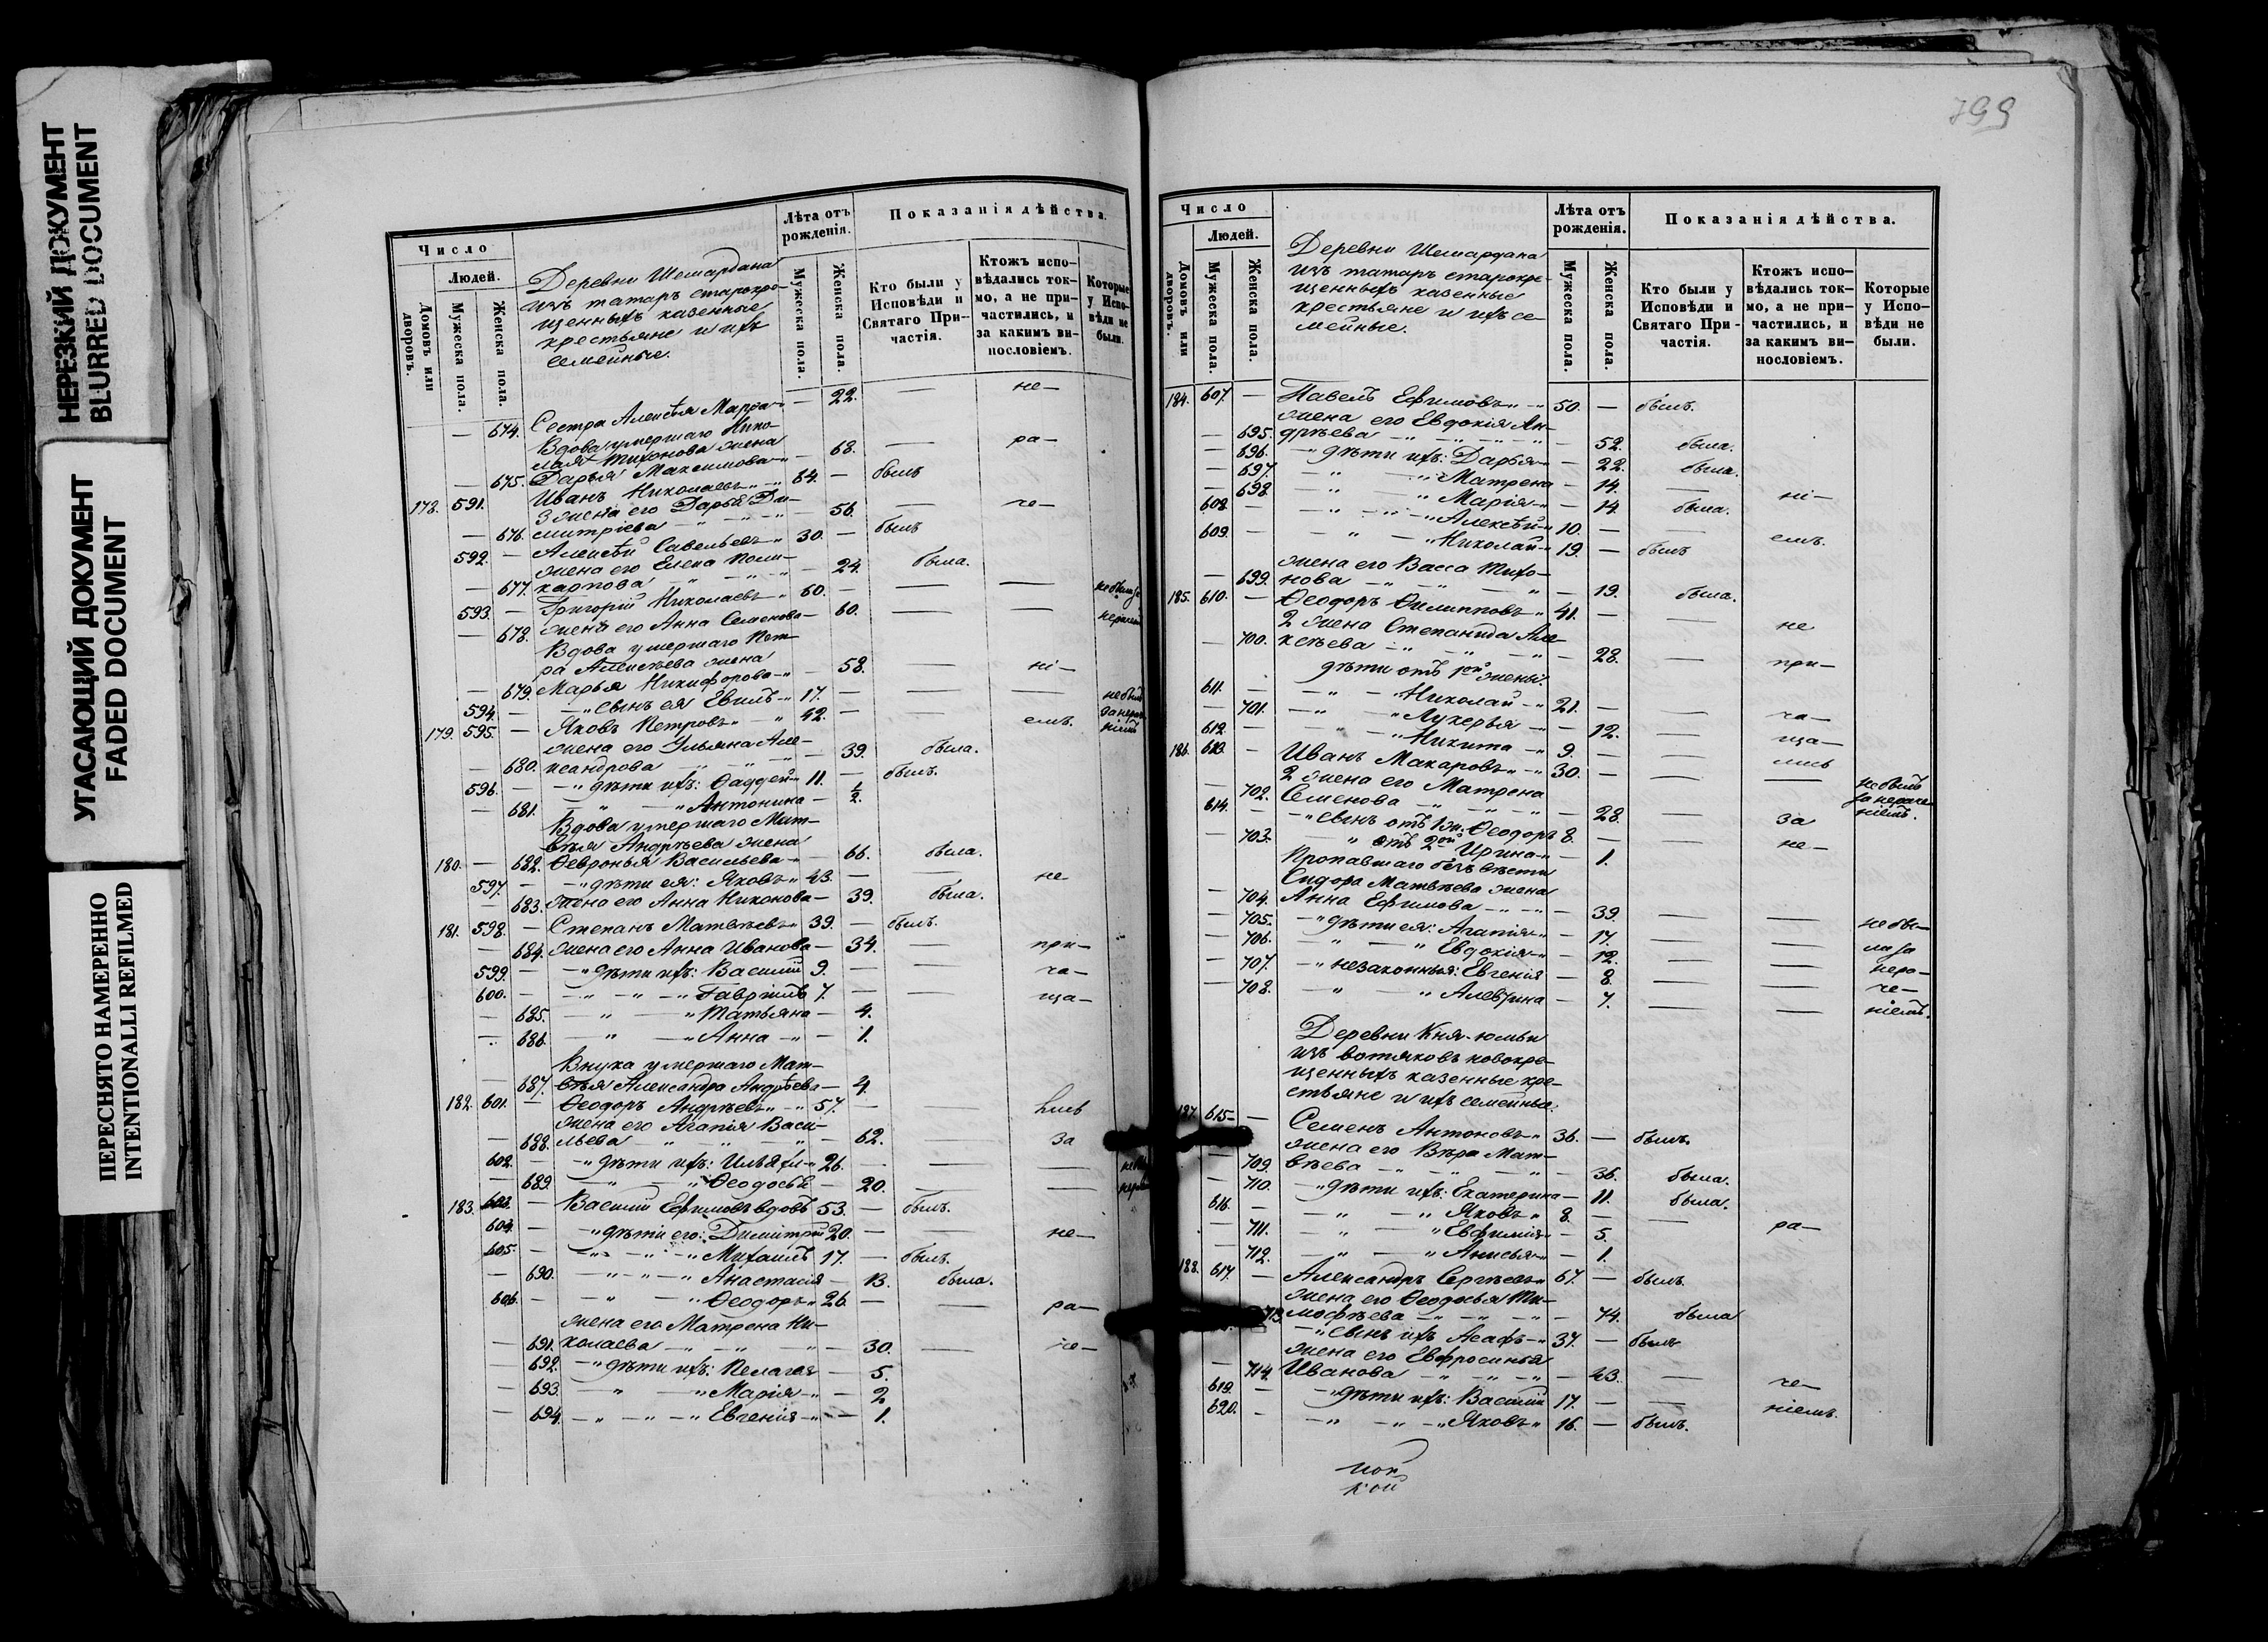 НЕРЕЗКИЙ ДОКУМЕНТ
BLURRED DOCUMENT
УГАСАЮЩИЙ ДОКУМЕНТ
FADED DOCUMENT
ПЕРЕСНЯТО НАМЕРЕННО
INTENTIONALLI REFILMED
Число
Людей.
Домовъ или дворовъ.
Мужеска пола.
Женска пола.
Деревни Шемардана
изъ татаръ старокре-
щенныхъ казенные
крестьяне и ихъ
семейные.
Лѣта отъ
рожденія.
Мужеска пола.
Женска пола.
Показанія дѣйства.
Кто были у
Исповѣди и
Святаго При-
частія.
Ктожъ испо-
вѣдались ток-
мо, а не при-
частились, и
за какимъ ви-
нословіемъ.
Которые
у Испо-
вѣди не
были.
— 674. Сестра Алексѣя Марѳа — 22. — не-
Вдова умершаго Нико-
лая Тихонова жена
— 675. Дарья Максимова — 68. — ра-
178. 591. Иванъ Николаевъ 64. — былъ
3 жена его Дарья Ди-
— 676. митріева — 56. — че-
592. — Алексѣй Савельевъ 30. — былъ
жена его Елена Поли-
— 677. карпова — 24. была.
593. — Григорій Николаевъ 60. —
— 678. жена его Анна Семенова — 60. —
Вдова умершаго Пет-
ра Алексѣева жена
— 679. Марья Никифорова — 58. — ні-
594. — сынъ ея 17. — не былъ
179. 595. — Яковъ Петровъ 42. — емъ.
жена его Ульяна Але-
— 680. ксандрова — 39. была.
596. — дѣти ихъ: Ѳаддей 11. — былъ.
— 681. Антонина — 1/2.
Вдова умершаго Мат-
вѣя Андрѣева жена
180. — 682. Ѳевронья Васильева — 66. была.
597. — дѣти ея: Яковъ 43. — не
— 683. жена его Анна Никонова — 39. была.
181. 598. — Степанъ Матвѣевъ 39. — былъ.
— 684. жена его Анна Иванова — 34. — при-
599. — дѣти ихъ: Василій 9. — ча-
600. — Гавріилъ 7. — ща-
— 685. Татьяна — 4.
— 686. Анна — 1.
Внука умершаго Мат-
— 687. вѣя Александра Андрѣева — 4.
182. 601. — Ѳеодоръ Андрѣевъ 57. — лись
жена его Агапія Васи-
— 688. льева — 62. — за
602. — дѣти ихъ: Илья 26. —
— 689. Ѳеодосья — 20. —
183. 603. — Василій Ефимовъ вдовъ 53. — былъ.
604. — дѣти его: Димитрій 20. — не-
605. — Михаилъ 17. — былъ.
— 690. Анастасія — 13. была.
606. — Ѳеодоръ 26. — ра-
жена его Матрена Ни-
— 691. колаева — 30. — че-
— 692. дѣти ихъ: Пелагея — 5.
— 693. Марія — 2
— 694. Евгенія — 1.
799
Число
Людей.
Домовъ или дворовъ.
Мужеска пола.
Женска пола.
Деревни Шемардана
изъ татаръ старокре-
щенныхъ казенные
крестьяне и ихъ се-
мейные.
Лѣта отъ
рожденія.
Мужеска пола.
Женска пола.
Показанія дѣйства.
Кто были у
Исповѣди и
Святаго При-
частія.
Ктожъ испо-
вѣдались ток-
мо, а не при-
частились, и
за какимъ ви-
нословіемъ.
Которые
у Испо-
вѣди не
были.
184. 607. — Павелъ Ефимовъ 50. — былъ.
жена его Евдокія Ан-
— 695. дрѣева — 52. была.
— 696. дѣти ихъ: Дарья — 22. была.
— 697. Матрена — 14. — ні-
— 698. Марія — 14. была.
608. — Алексѣй 10. — емъ.
609. — Николай 19. — былъ
жена его Васса Тихо-
— 699. нова — 19. была.
185. 610. — Ѳеодоръ Филипповъ 41. — не
2 жена Степанида Але-
— 700. ксѣева — 28. — при-
дѣти отъ 1ой жены:
611. — Николай 21. — ча-
— 701. Лукерья — 12. — ща-
612. — Никита 9. — лись
186. 613. — Иванъ Макаровъ 30. — не былъ
2 жена его Матрена
— 702. Семенова — 28. — за
614. — сынъ отъ 1 ж. Ѳеодоръ 8. — не-
— 703. отъ 2ой Ирина — 1.
Пропавшаго безъ вѣсти
Сидора Матвѣева жена
— 704. Анна Ефимова — 39. — не бы-
— 705. дѣти ея: Агапія — 17. — ла за
— 706. Евдокія — 12. — нера-
— 707. незаконныя: Евгенія — 8. — че-
— 708. Алевтина — 7. — ніемъ.
Деревни Кня-юмьи
изъ вотяковъ новокре-
щенныхъ казенные кре-
стьяне и ихъ семейные.
187. 615 — Семенъ Антоновъ 36. — былъ.
жена его Вѣра Мат-
— 709. вѣева — 36. была.
— 710. дѣти ихъ: Екатерина — 11. была.
616. — Яковъ 8. — ра-
— 711. Евфимія — 5.
— 712. Анисья — 1.
188. 617. — Александръ Сергѣевъ 67. — былъ.
жена его Ѳеодосья Ти-
713 моѳѣева — 74. была
сынъ ихъ Асафъ 37. — былъ
жена его Евфросинья
— 714. Иванова — 43. — че-
619. — дѣти ихъ: Василій 17. — ніемъ.
620. — Яковъ 16. — былъ.